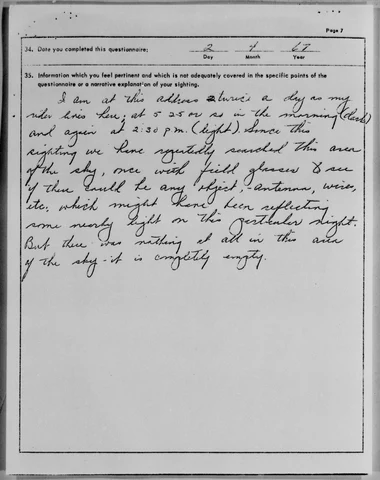 Page 7
34. Date you completed this questionnaire: 2 4 67
Day Month Year
35. Information which you feel pertinent and which is not adequately covered in the specific points of the
questionnaire or a narrative explanation of your sighting.
I am at this address twice a day as my
rider lives here; at 5 25 or so in the morning (dark)
and again at 2:30 p.m. (light). Since this
sighting we have repeatedly searched this area
of the sky, once with field glasses to see
if there could be any object, - antenna, wires,
etc. which might have been reflecting
some nearby light on this particular night.
But there was nothing at all in this area
of the sky - it is completely empty.